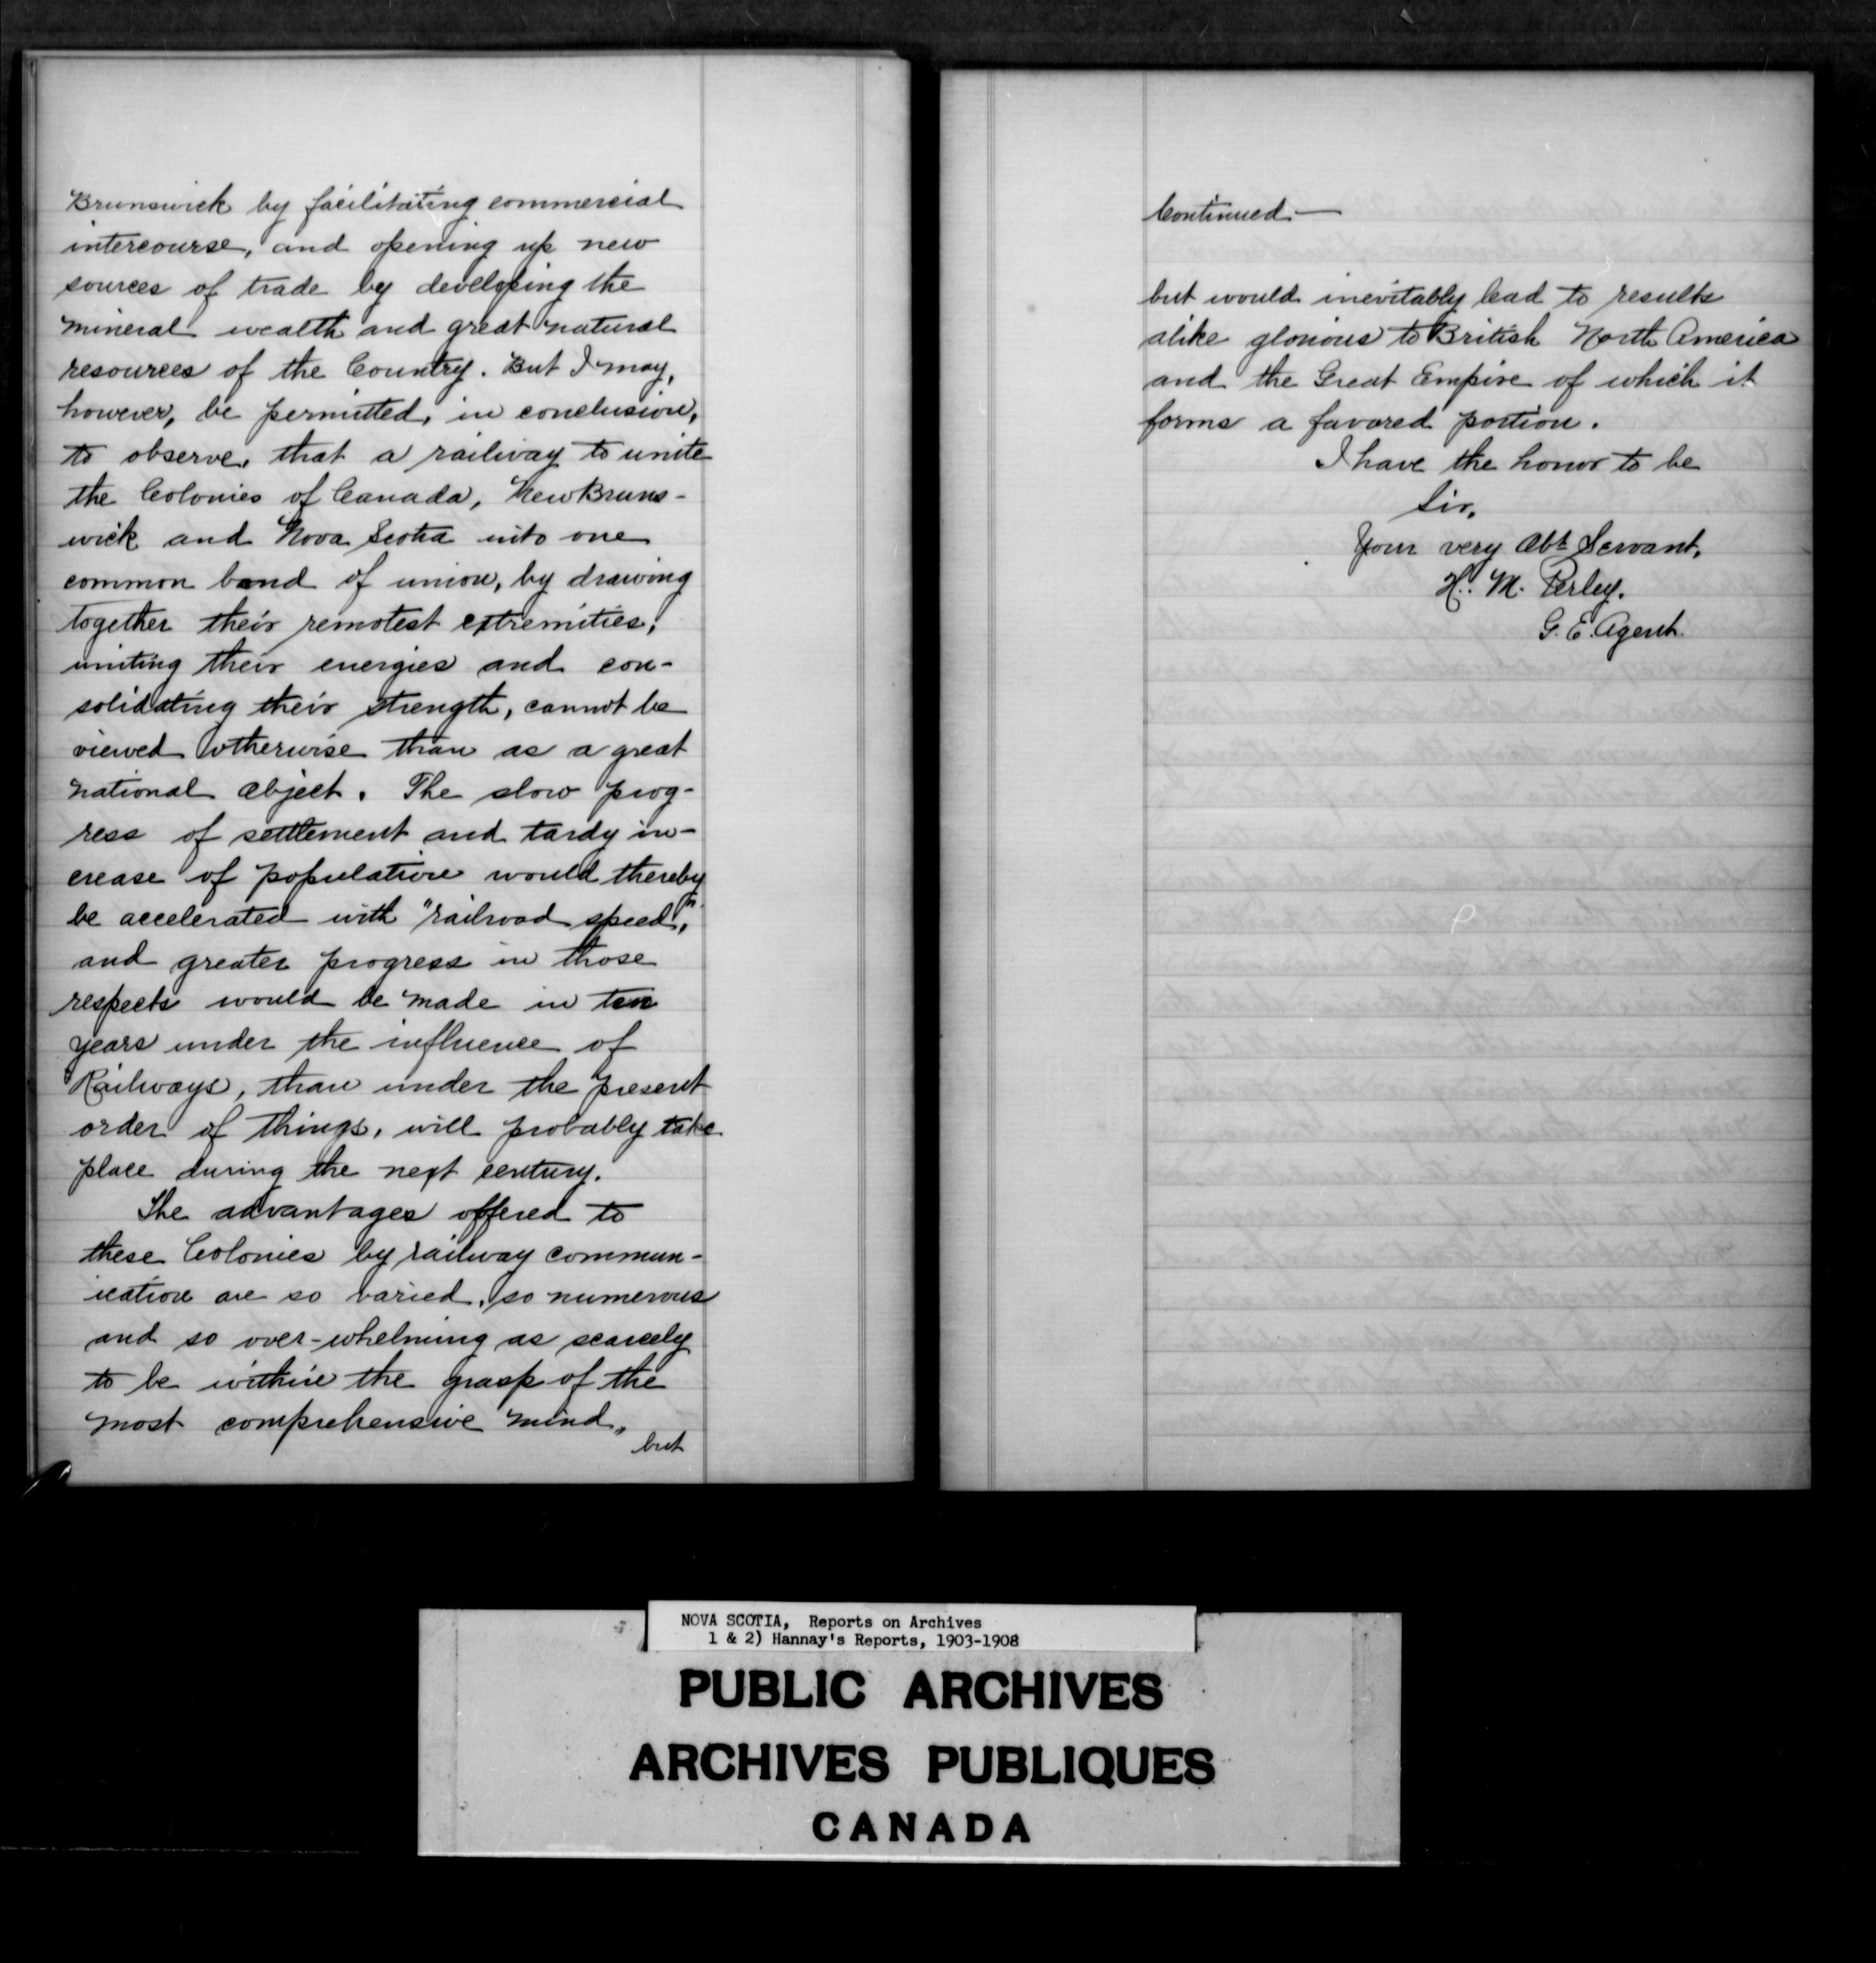 Brunswick by facilitating commercial
intercourse, and opening up new
sources of trade by developing the
mineral wealth and great natural
resources of the Country. But I may,
however, be permitted, in conclusion,
to observe, that a railway to unite
the Colonies of Canada, New Bruns-
wick and Nova Scotia into one
common bond of union, by drawing
together their remotest extremities,
uniting their energies and con-
solidating their strength, cannot be
viewed otherwise than as a great
national object. The slow prog-
ress of settlement and tardy in-
crease of population would thereby
be accelerated with "railroad speed,"
and greater progress in those
respects would be made in ten
years under the influence of
Railways, than under the present
order of things, will probably take
place during the next century.
The advantages offered to
these Colonies by railway commun-
ication are so varied, so numerous
and so over-whelming as scarcely
to be within the grasp of the
most comprehensive mind,
but
Continued —
but would inevitably lead to results
alike glorious to British North America
and the Great Empire of which it
forms a favored portion.
I have the honor to be
Sir,
Your very Obt Servant,
H. M. Perley.
G. E. Agent.
NOVA SCOTIA, Reports on Archives
1 & 2) Hannay's Reports, 1903-1908
PUBLIC ARCHIVES
ARCHIVES PUBLIQUES
CANADA